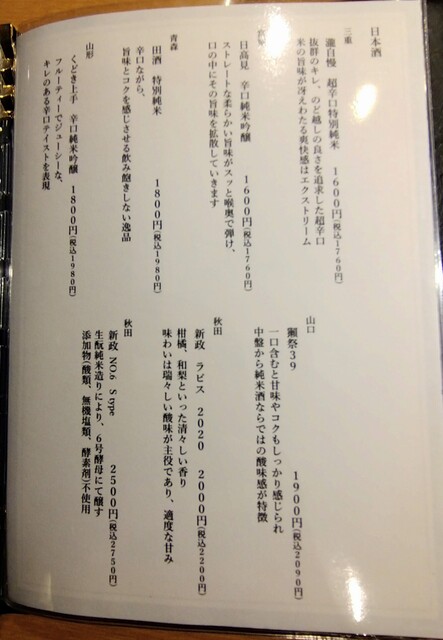 日本酒
三重
瀧自慢 超辛口特別純米 1600円(税込1760円)
抜群のキレ、のど越しの良さを追求した超辛口
米の旨味が冴えわたる爽快感はエクストリーム
日高見 辛口純米吟醸 1600円(税込1760円)
ストレートな柔らかい旨味がスッと喉奥で弾け、
口の中にその旨味を拡散していきます
青森
田酒 特別純米 1800円(税込1980円)
辛口ながら、
旨味とコクを感じさせる飲み飽きしない逸品
山形
くどき上手 辛口純米吟醸 1800円(税込1980円)
フルーティーでジューシーな、
キレのある辛口テイストを表現
山口
獺祭39 1900円(税込2090円)
一口含むと甘味やコクもしっかり感じられ
中盤から純米酒ならではの酸味感が特徴
秋田
新政 ラピス 2020 2000円(税込2200円)
柑橘、和梨といった清々しい香り
味わいは瑞々しい酸味が主役であり、適度な甘み
秋田
新政 NO.6 S type 2500円(税込2750円)
生酛純米造りにより、6号酵母にて醸す
添加物(酸類、無機塩類、酵素剤)不使用